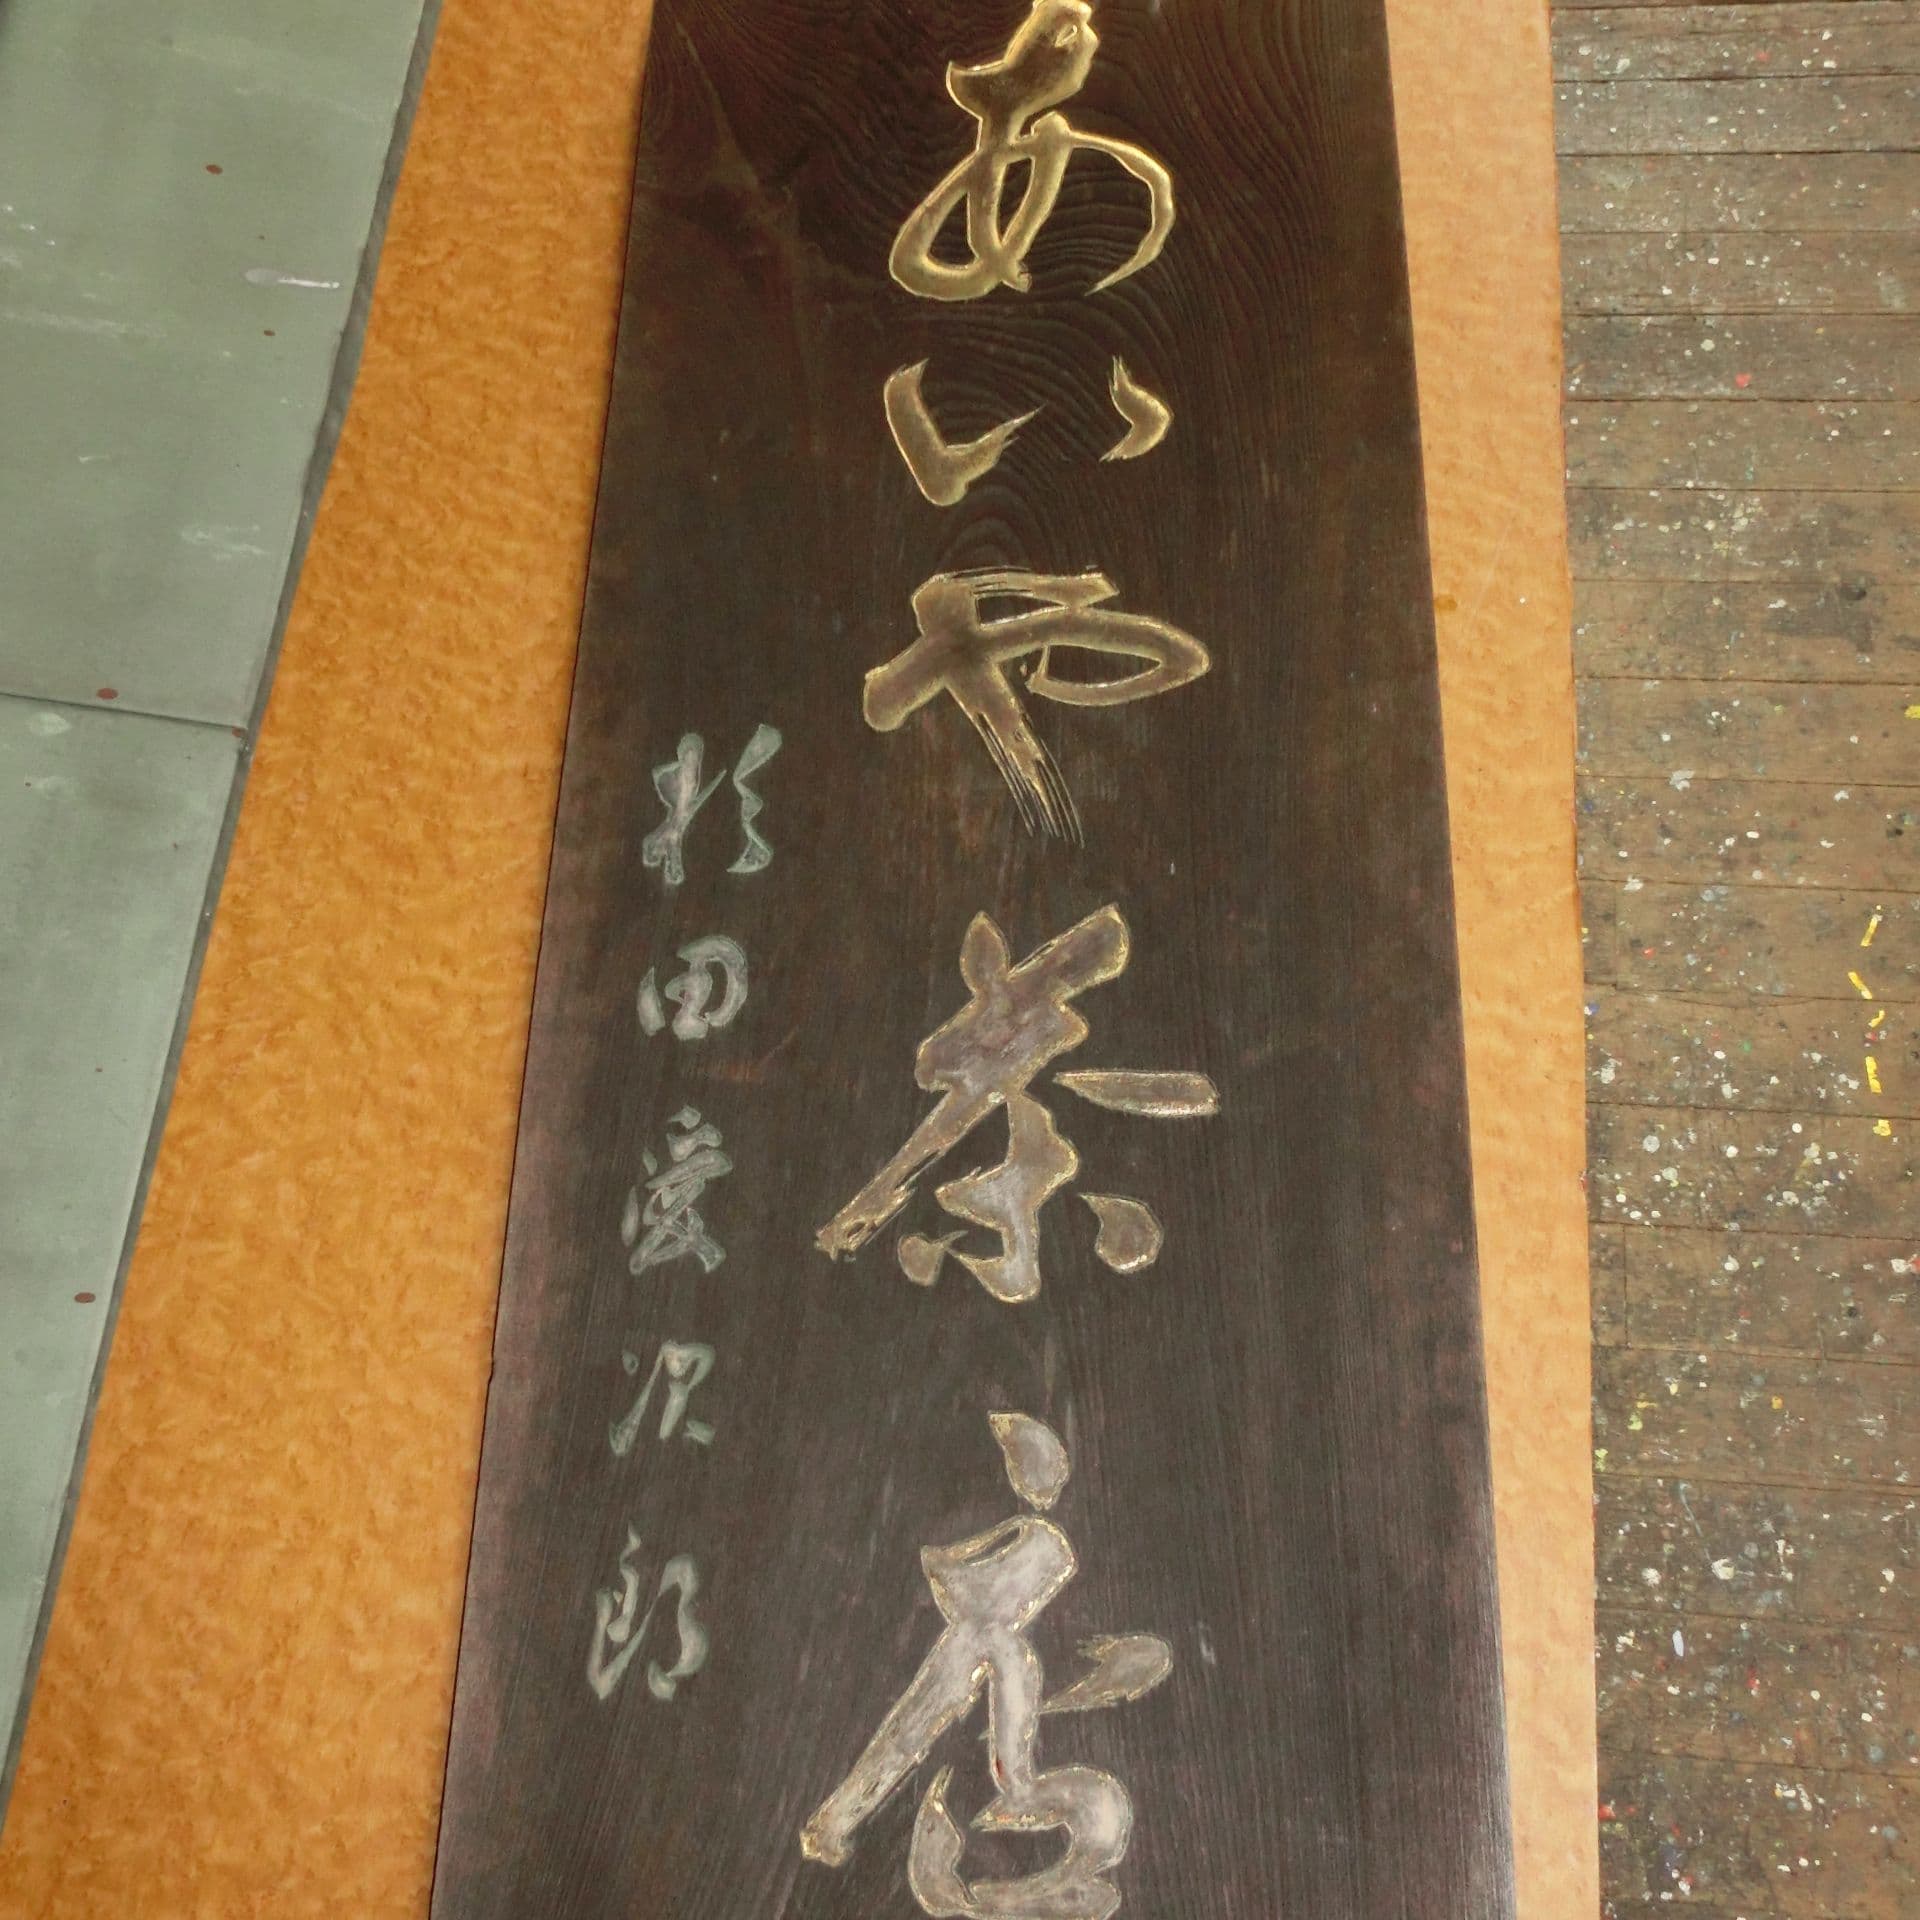 あいや茶店
杉田愛次郎